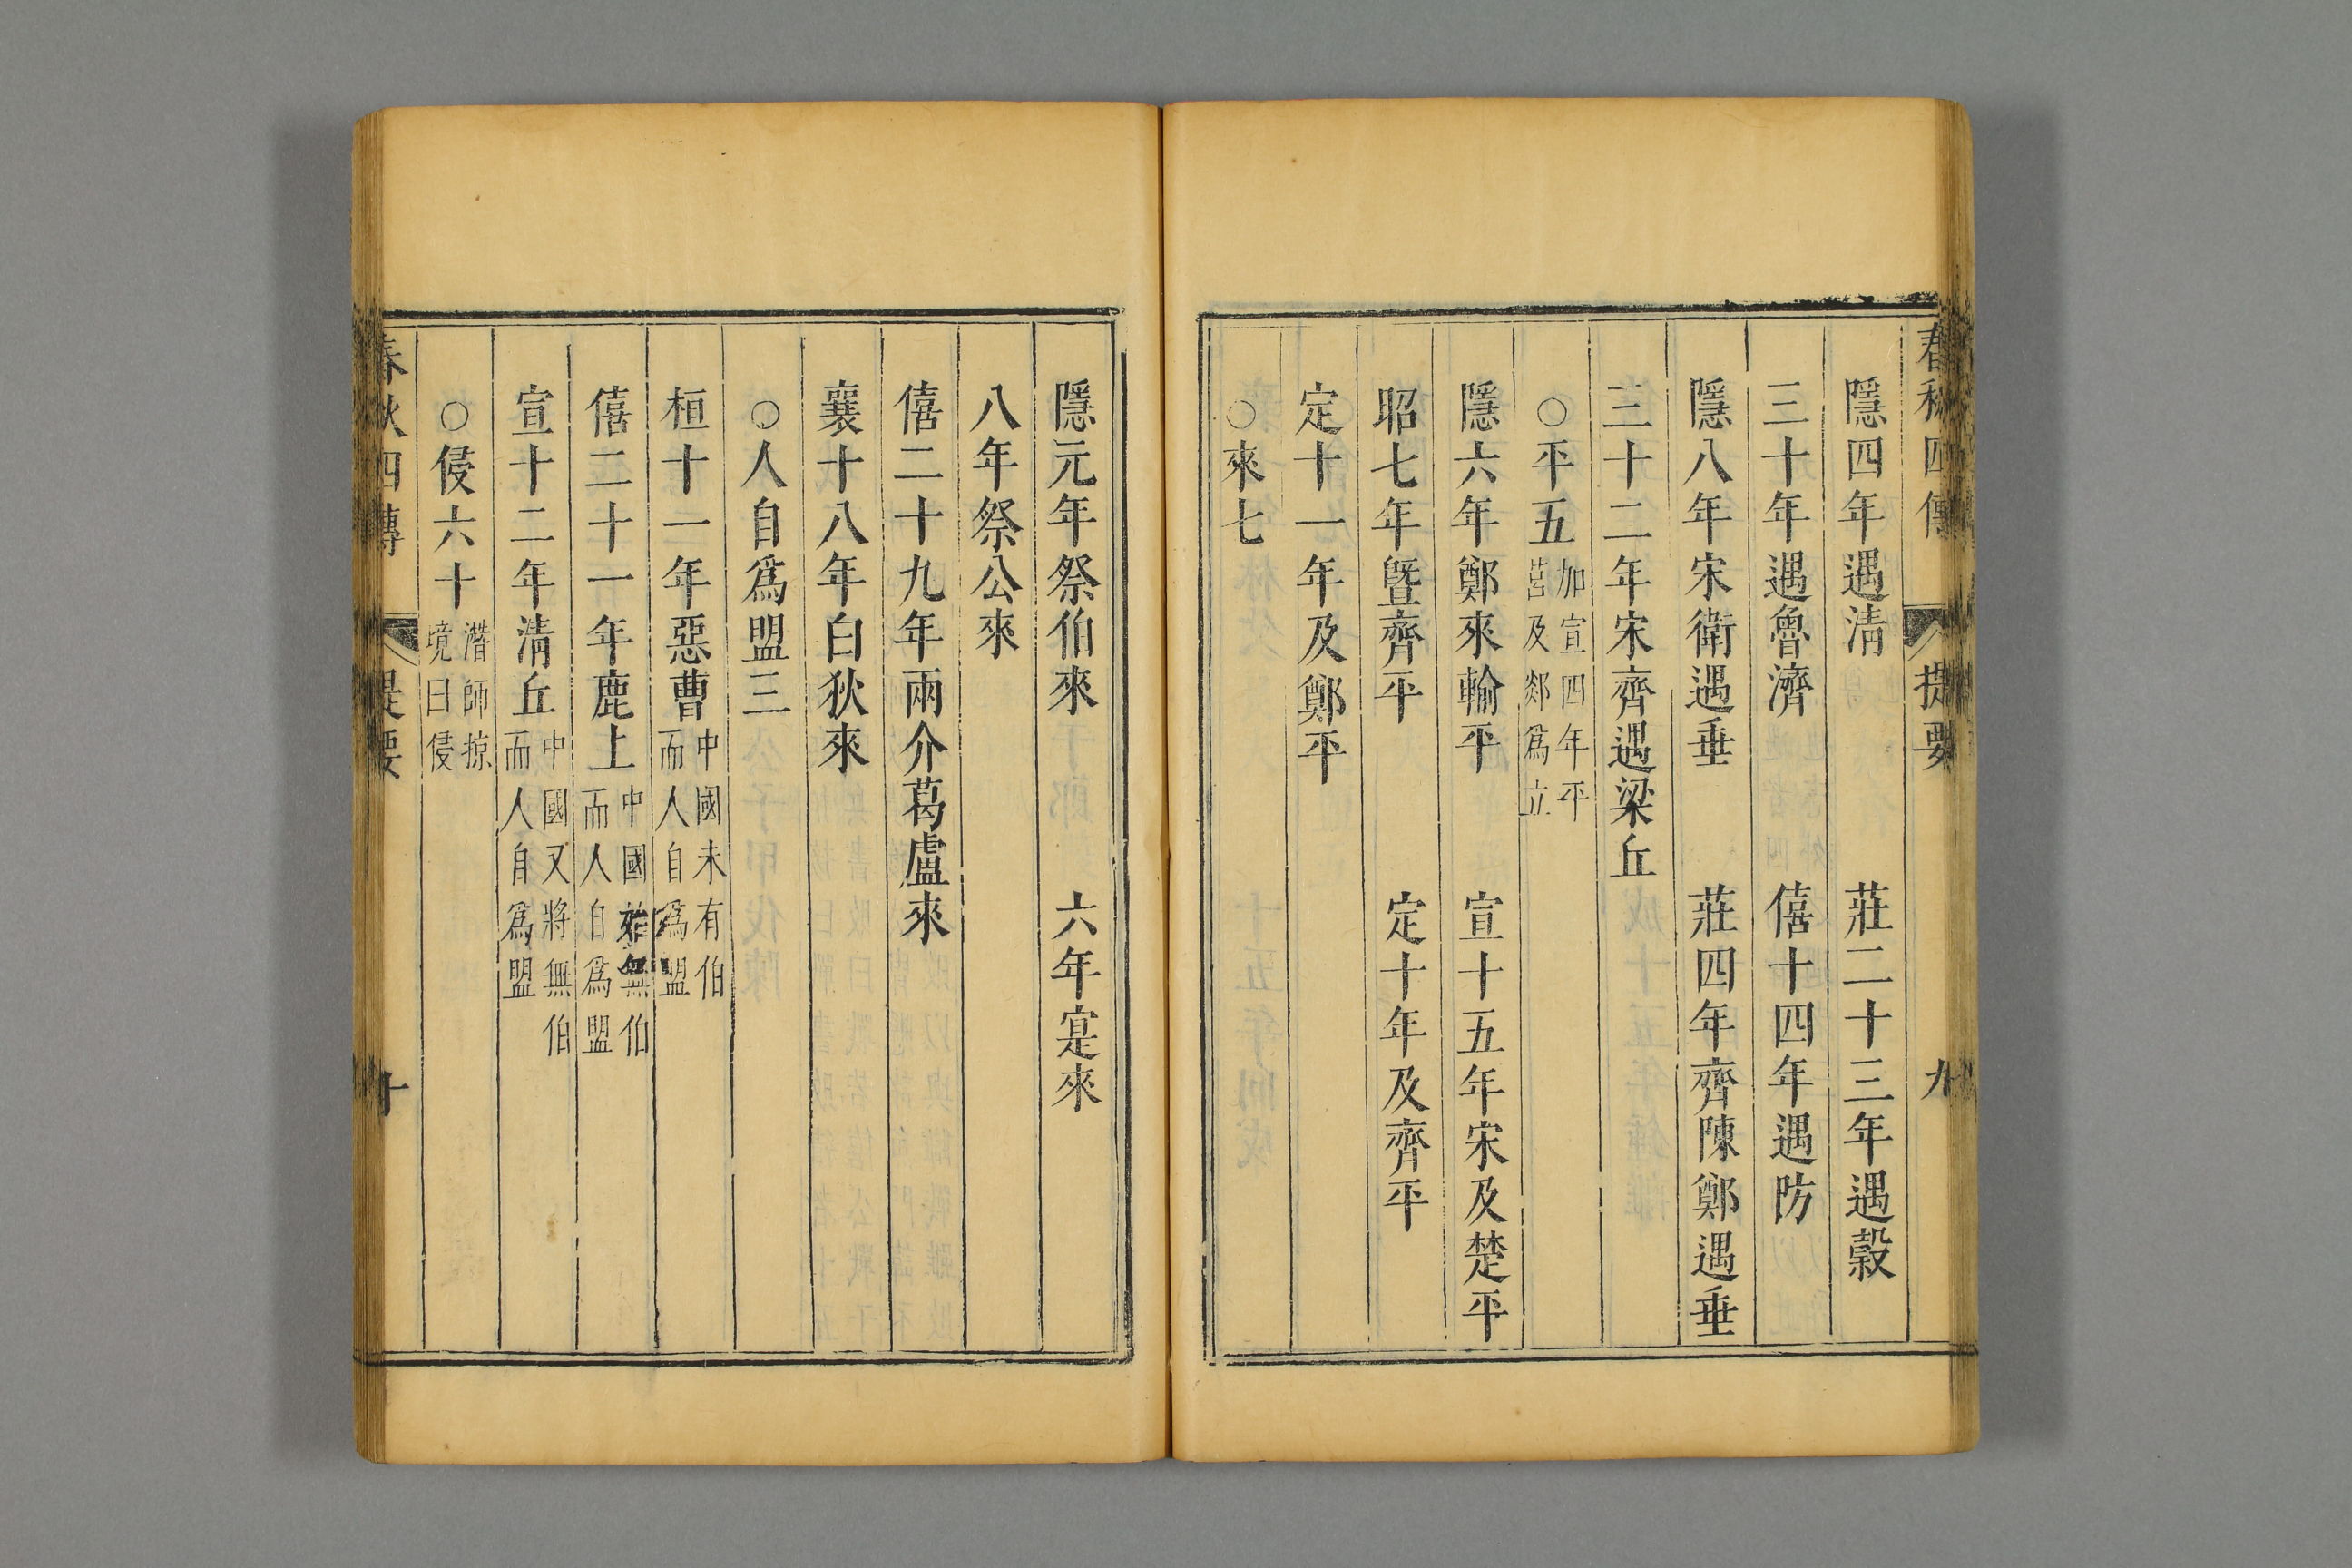 春秋四傳 提要 九
隱四年遇清 莊二十三年遇穀
三十年遇魯濟 僖十四年遇防
隱八年宋衛遇垂 莊四年齊陳鄭遇垂
三十二年宋齊遇梁丘
○平五 加宣四年平莒及郯爲立
隱六年鄭來輸平 宣十五年宋及楚平
昭七年曁齊平 定十年及齊平
定十一年及鄭平
○來七
隱元年祭伯來 六年寔來
八年祭公來
僖二十九年兩介葛盧來
襄十八年白狄來
○人自爲盟三
桓十一年惡曹 中國未有伯而人自爲盟
僖二十一年鹿上 中國始無伯而人自爲盟
宣十二年清丘 中國又將無伯而人自爲盟
○侵六十 潛師掠境曰侵
春秋四傳 提要 十